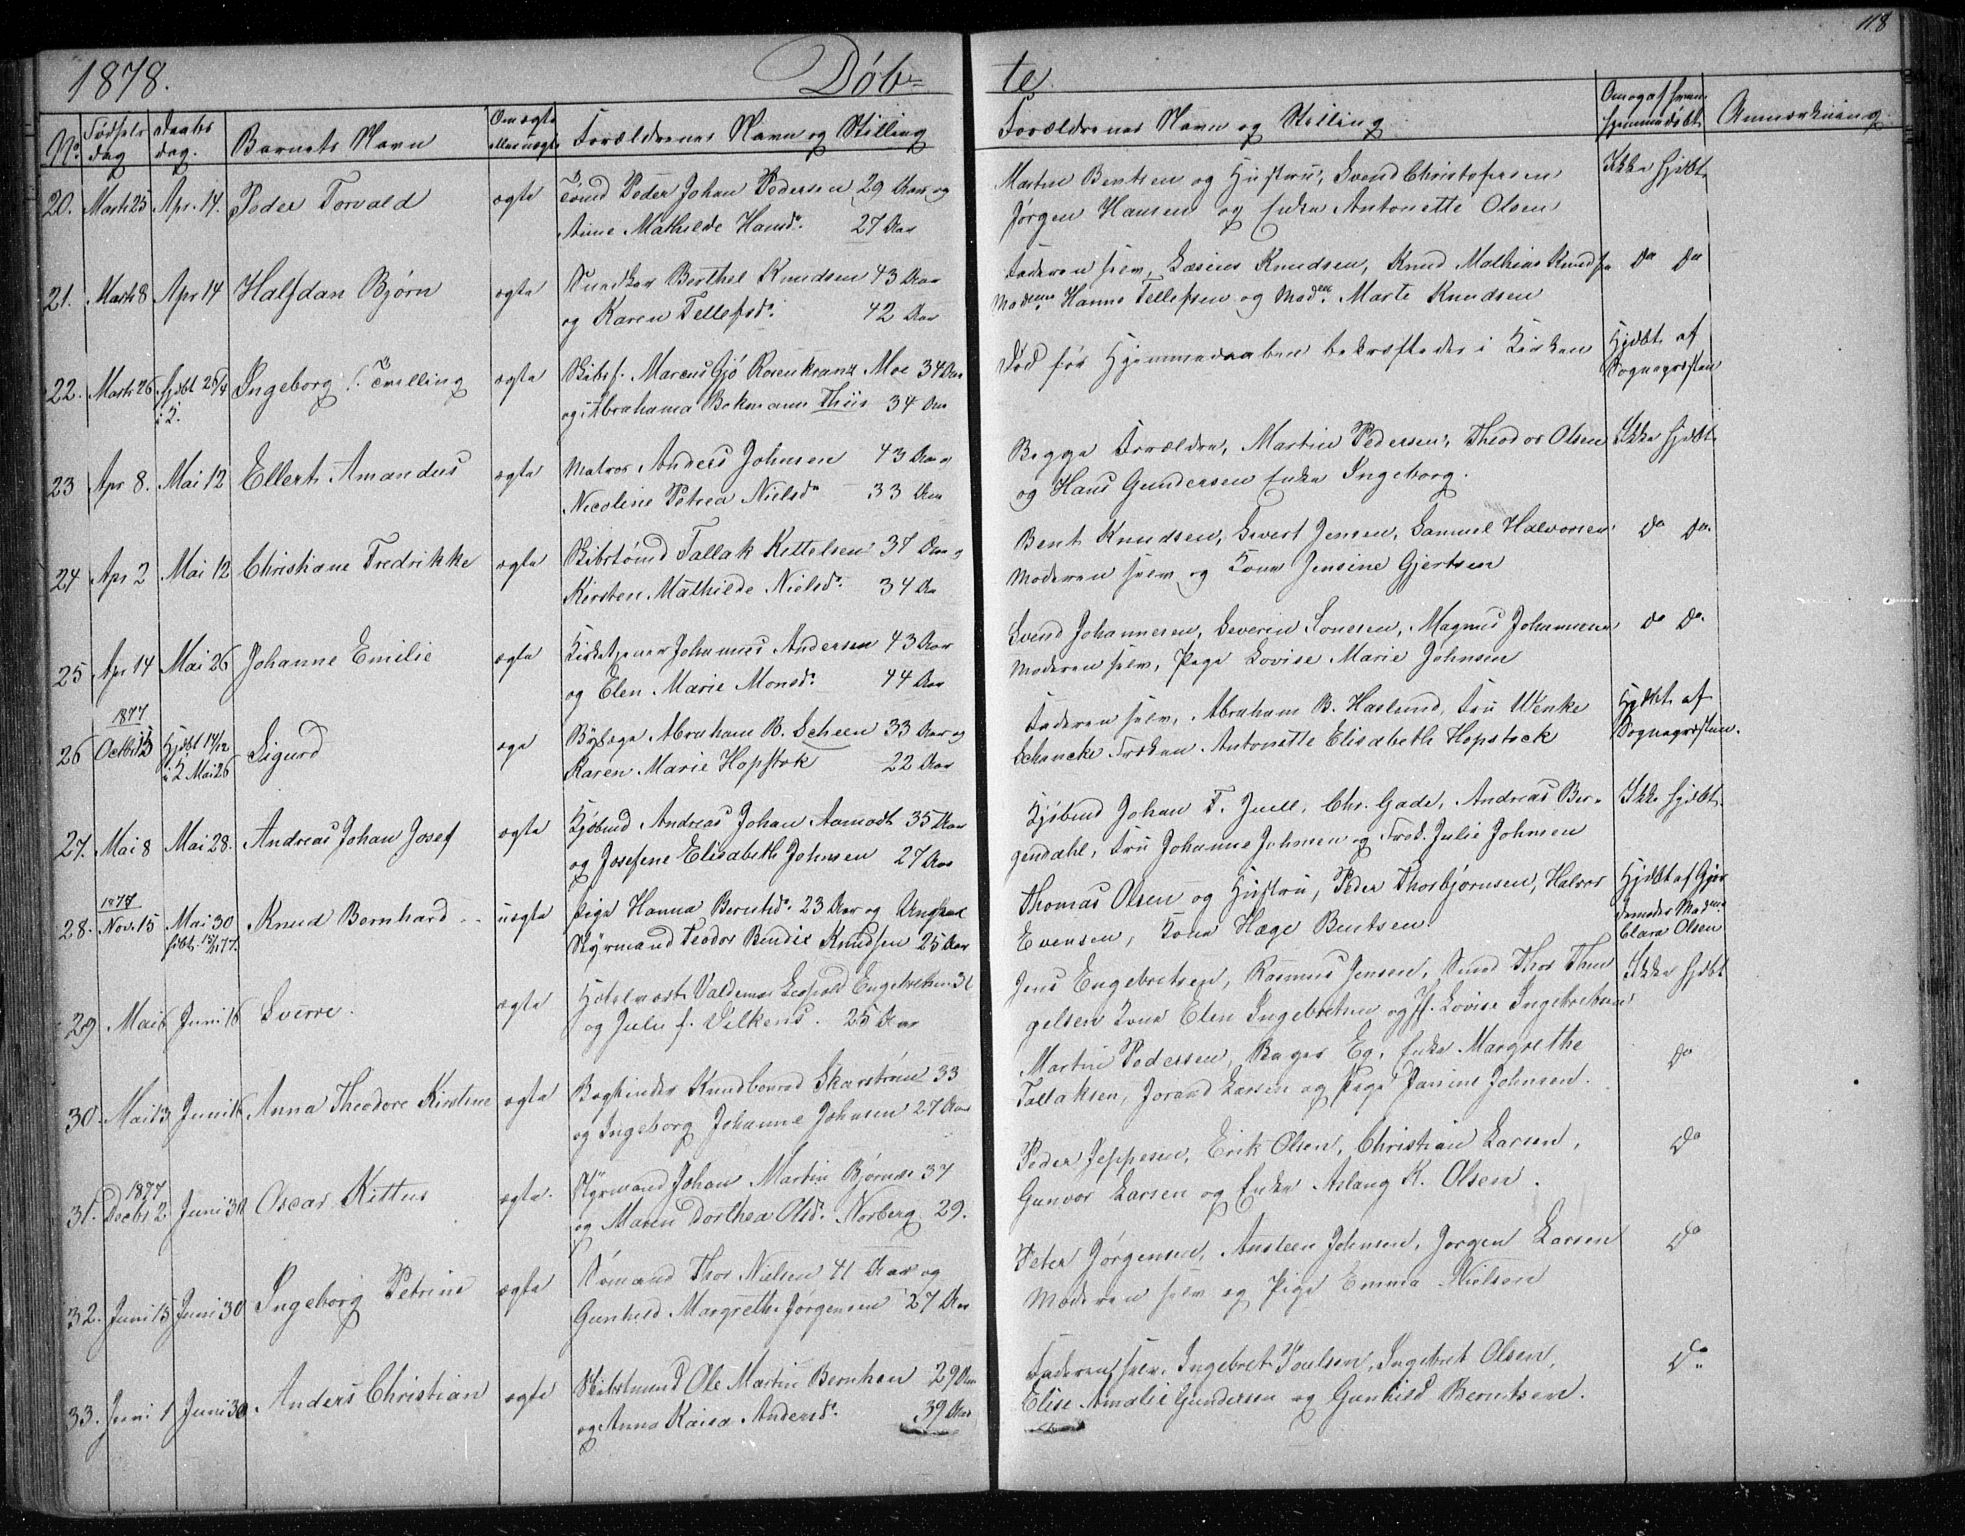 118
1878.
Døb=
te
No
Fødsels
dag
Daabs
dag.
Barnets Navn
Om ægte
eller uægte
Forældrenes Navn og Stilling
Forældrenes Navn og Stilling
Om og af hvem
hjemmedøbt
Anmærkning.
20. Marts 25 Apr. 14. Peder Torvald ægte Tømd Peder Johan Pedersen 29 Aar og
Anne Mathilde Hansdr. 27 Aar
Martin Bentsen og Hustru, Svend Christofersen
Jørgen Hansen og Enke Antonette Olsen
Ikke hjdbt.
21. Marts 8 Apr 14 Halfdan Bjørn ægte Berthel Knudsen 43 Aar
og Karen Tellefsdr. 42 Aar
Faderen selv, Knudsen, Knud Mathias Knudsen
Madame Hanne Tellefsen og Mad. Marte Knudsen
Do Do
22. Marts 26 hjdbt 26/4 i K. Ingeborg f. Tvilling ægte Skibsf. Marcus Gjø Rosenkranz Moe 34 Aar
og Abrahama Bokmann Thiis 34 Aar
Død før Hjemmedaaben bekræftedes i Kirken
Hjdbt af
Sognepræsten
23 Apr 8. Mai 12 Ellert Amandus ægte Matros Anders Johnsen 43 Aar
Nicoline Petrea Nielsdr 33 Aar
Begge Forældre, Martin Pedersen, Theodor Olsen
og Hans Gundersen Enke Ingeborg.
Ikke hjdbt.
24 Apr 2 Mai 12 Christiane Fredrikke ægte Skibstømd Tallak Kittelsen 37 Aar og
Kirsten Mathilde Nielsdr. 34 Aar
Bent Knudsen, Sivert Jensen, Samuel Halvorsen
Moderen selv og Kone Jensine Gjertsen
Do Do.
25 Apr 14 Mai 26 Johanne Emilie ægte Kirketjener Johannes Andersen 43 Aar
og Elen Marie Monsdr. 44 Aar
Svend Johannesen, Severin Tonesen, Magnus Johannesen
Moderen selv, Pige Lovise Marie Johnsen
Do Do.
26 1877 Octbr 13 Hjdbt 14/12 i K Mai 26 Sigurd ægte Abraham B. Scheen 33 Aar og
Karen Marie Hopstok 22 Aar
Faderen selv, Abraham B. Haslund, Fru Wenke
Schancke Frøken Antonette Elisabeth Hopstock
Hjdbt af
Sognepræsten.
27. Mai 8 Mai 28. Andreas Johan Josef ægte Kjøbmd Andreas Johan Aamodt 35 Aar
og Josefine Elisabeth Johnsen 27 Aar
Kjøbmd Johan F. Juell, Chr. Gade, Andreas Ber-
gendahl, Fru Johanne Johnsen og Frøk. Julie Johnsen
Ikke hjdbt.
28. 1877 Nov. 15 Mai 30 hjdbt 15/11 77. Knud Bernhard uægte Pige Hanna Berntsdr. 23 Aar og Ungkarl
Styrmand Teodor Bendix Knudsen 25 Aar
Thomas Olsen og Hustru, Peder Thorbjørnsen, Halvor
Evensen, Kone Hæge Bentsen
Hjdbt af Gjor
demoder Madme
Clara Olsen
29 Mai 6 Juni 16 Sverre. ægte Hotelvært Valdemar Leopold Engebretsen 31
og Julie f. Vilkens. 25 Aar
Jens Engebretsen, Rasmus Jensen, Smed Thor Thom
gelsen Kone Elen Ingebretsen og Lovise Ingebretsen
Ikke hjdbt
30. Mai 13 Juni 16 Anna Theodore Kirstine ægte Bogbinder Skarstrøm 33
og Ingeborg Johanne Johnsen 27 Aar
Martin Pedersen, Bager Eg, Enke Margrethe
Tallaksen, Jorand Larsen og Pige Janine Johnsen.
Do
31. 1877 Decbr 2. Juni 30 Oscar Kittus ægte. Styrmand Johan Martin 37
og Maren Dorthea Olsdr. Norberg 29.
Peder Jeppesen, Erik Olsen, Christian Larsen,
Gunvor Larsen og Enke Aslaug K. Olsen.
Do
32. Juni 15 Juni 30 Ingeborg Petrine ægte Sømand Thor Nielsen 41 Aar og
Gunhild Margrethe Jørgensen 27 Aar
Peter Jørgensen, Austeen Johnsen, Jørgen Larsen
Moderen selv og Pige Emma Nielsen
Do
33. Juni 1 Juni 30 Anders Christian ægte Skibstmd Ole Martin 29 Aar
og Anna Kaisa Andersdr. 39 Aar
Faderen selv, Ingebret Poulsen, Ingebret Olsen,
Elise Amalie Gundersen og Gunhild Berntsen.
Do